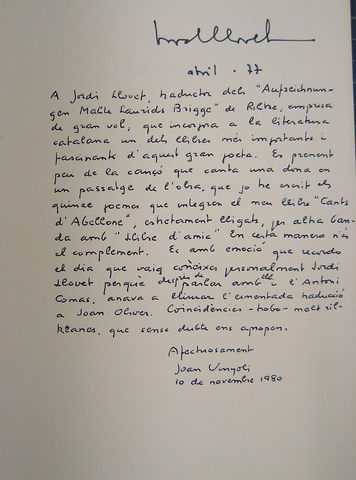 Jordi Llovet
abril - 77
A Jordi Llovet, traductor dels "Aufzeichnun-
gen Malte Laurids Brigge" de Rilke, empresa
de gran vol, que incorpora a la literatura
catalana un dels llibres més importants i
fascinants d'aquest gran poeta. Es prenent
peu de la cançó que canta una dona en
un passatge de l'obra, que jo he escrit els
quinze poemes que integren el meu llibre "Cants
d'Abelone", estretament lligats, per altra ban-
da amb "Llibre d'amic" En certa manera n'és
el complement. Es amb emoció que recordo
el dia que vaig conèixer personalment Jordi
Llovet perquè després de parlar amb ell i l'Antoni
Comas, anava a lliurar l'esmentada traducció
a Joan Oliver. Coincidències -trobo- molt ril-
keanes, que sense dubte ens apropen.
Afectuosament
Joan Vinyoli
10 de novembre 1980